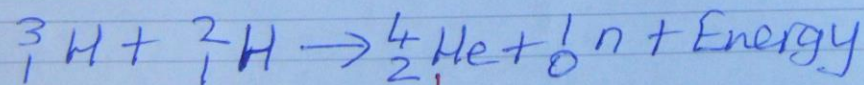 ³₁H + ²₁H → ⁴₂He + ¹₀n + Energy